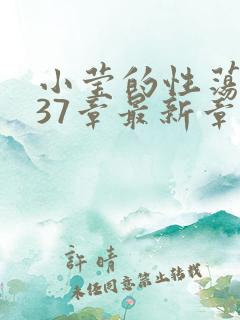 小莹的性荡
37章最新章
许晴
未经同意禁止转载